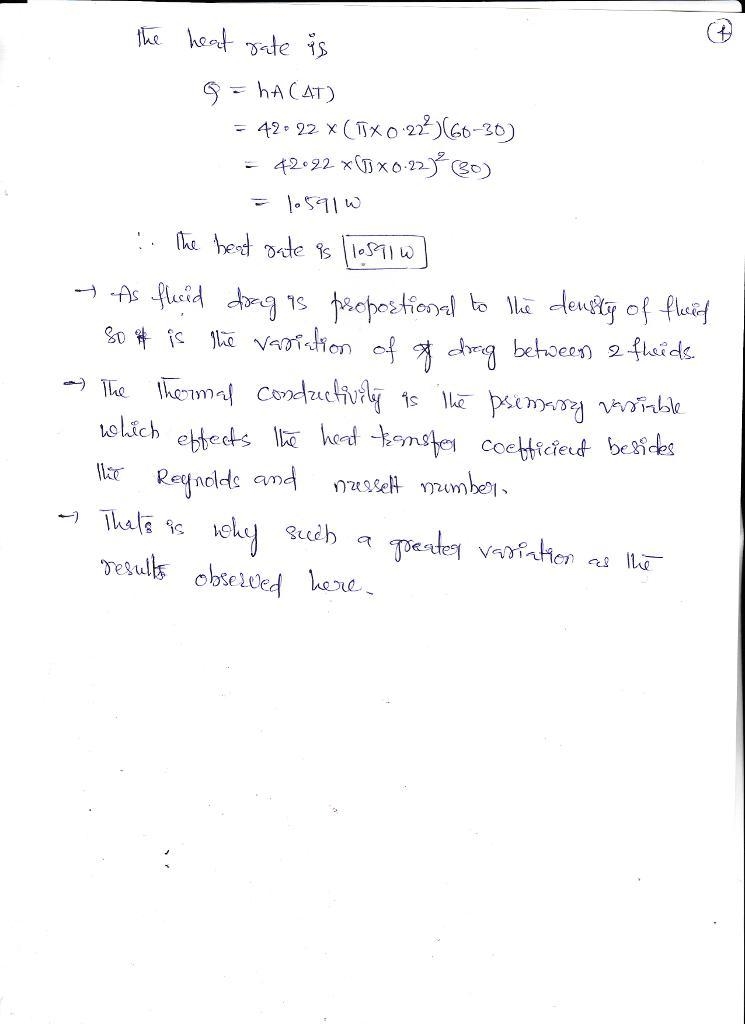 4
The heat rate is
Q = hA(ΔT)
= 42.22 × (π×0.22²)(60-30)
= 42.22 × (π×0.22)² (30)
= 10591 W
∴ The heat rate is 10591 W
→ As fluid drag is proportional to the density of fluid
so it is the variation of drag between 2 fluids.
→ The thermal conductivity is the primary variable
which effects the heat transfer coefficient besides
the Reynolds and nusselt number.
→ That's is why such a greater variation as the
results observed here.